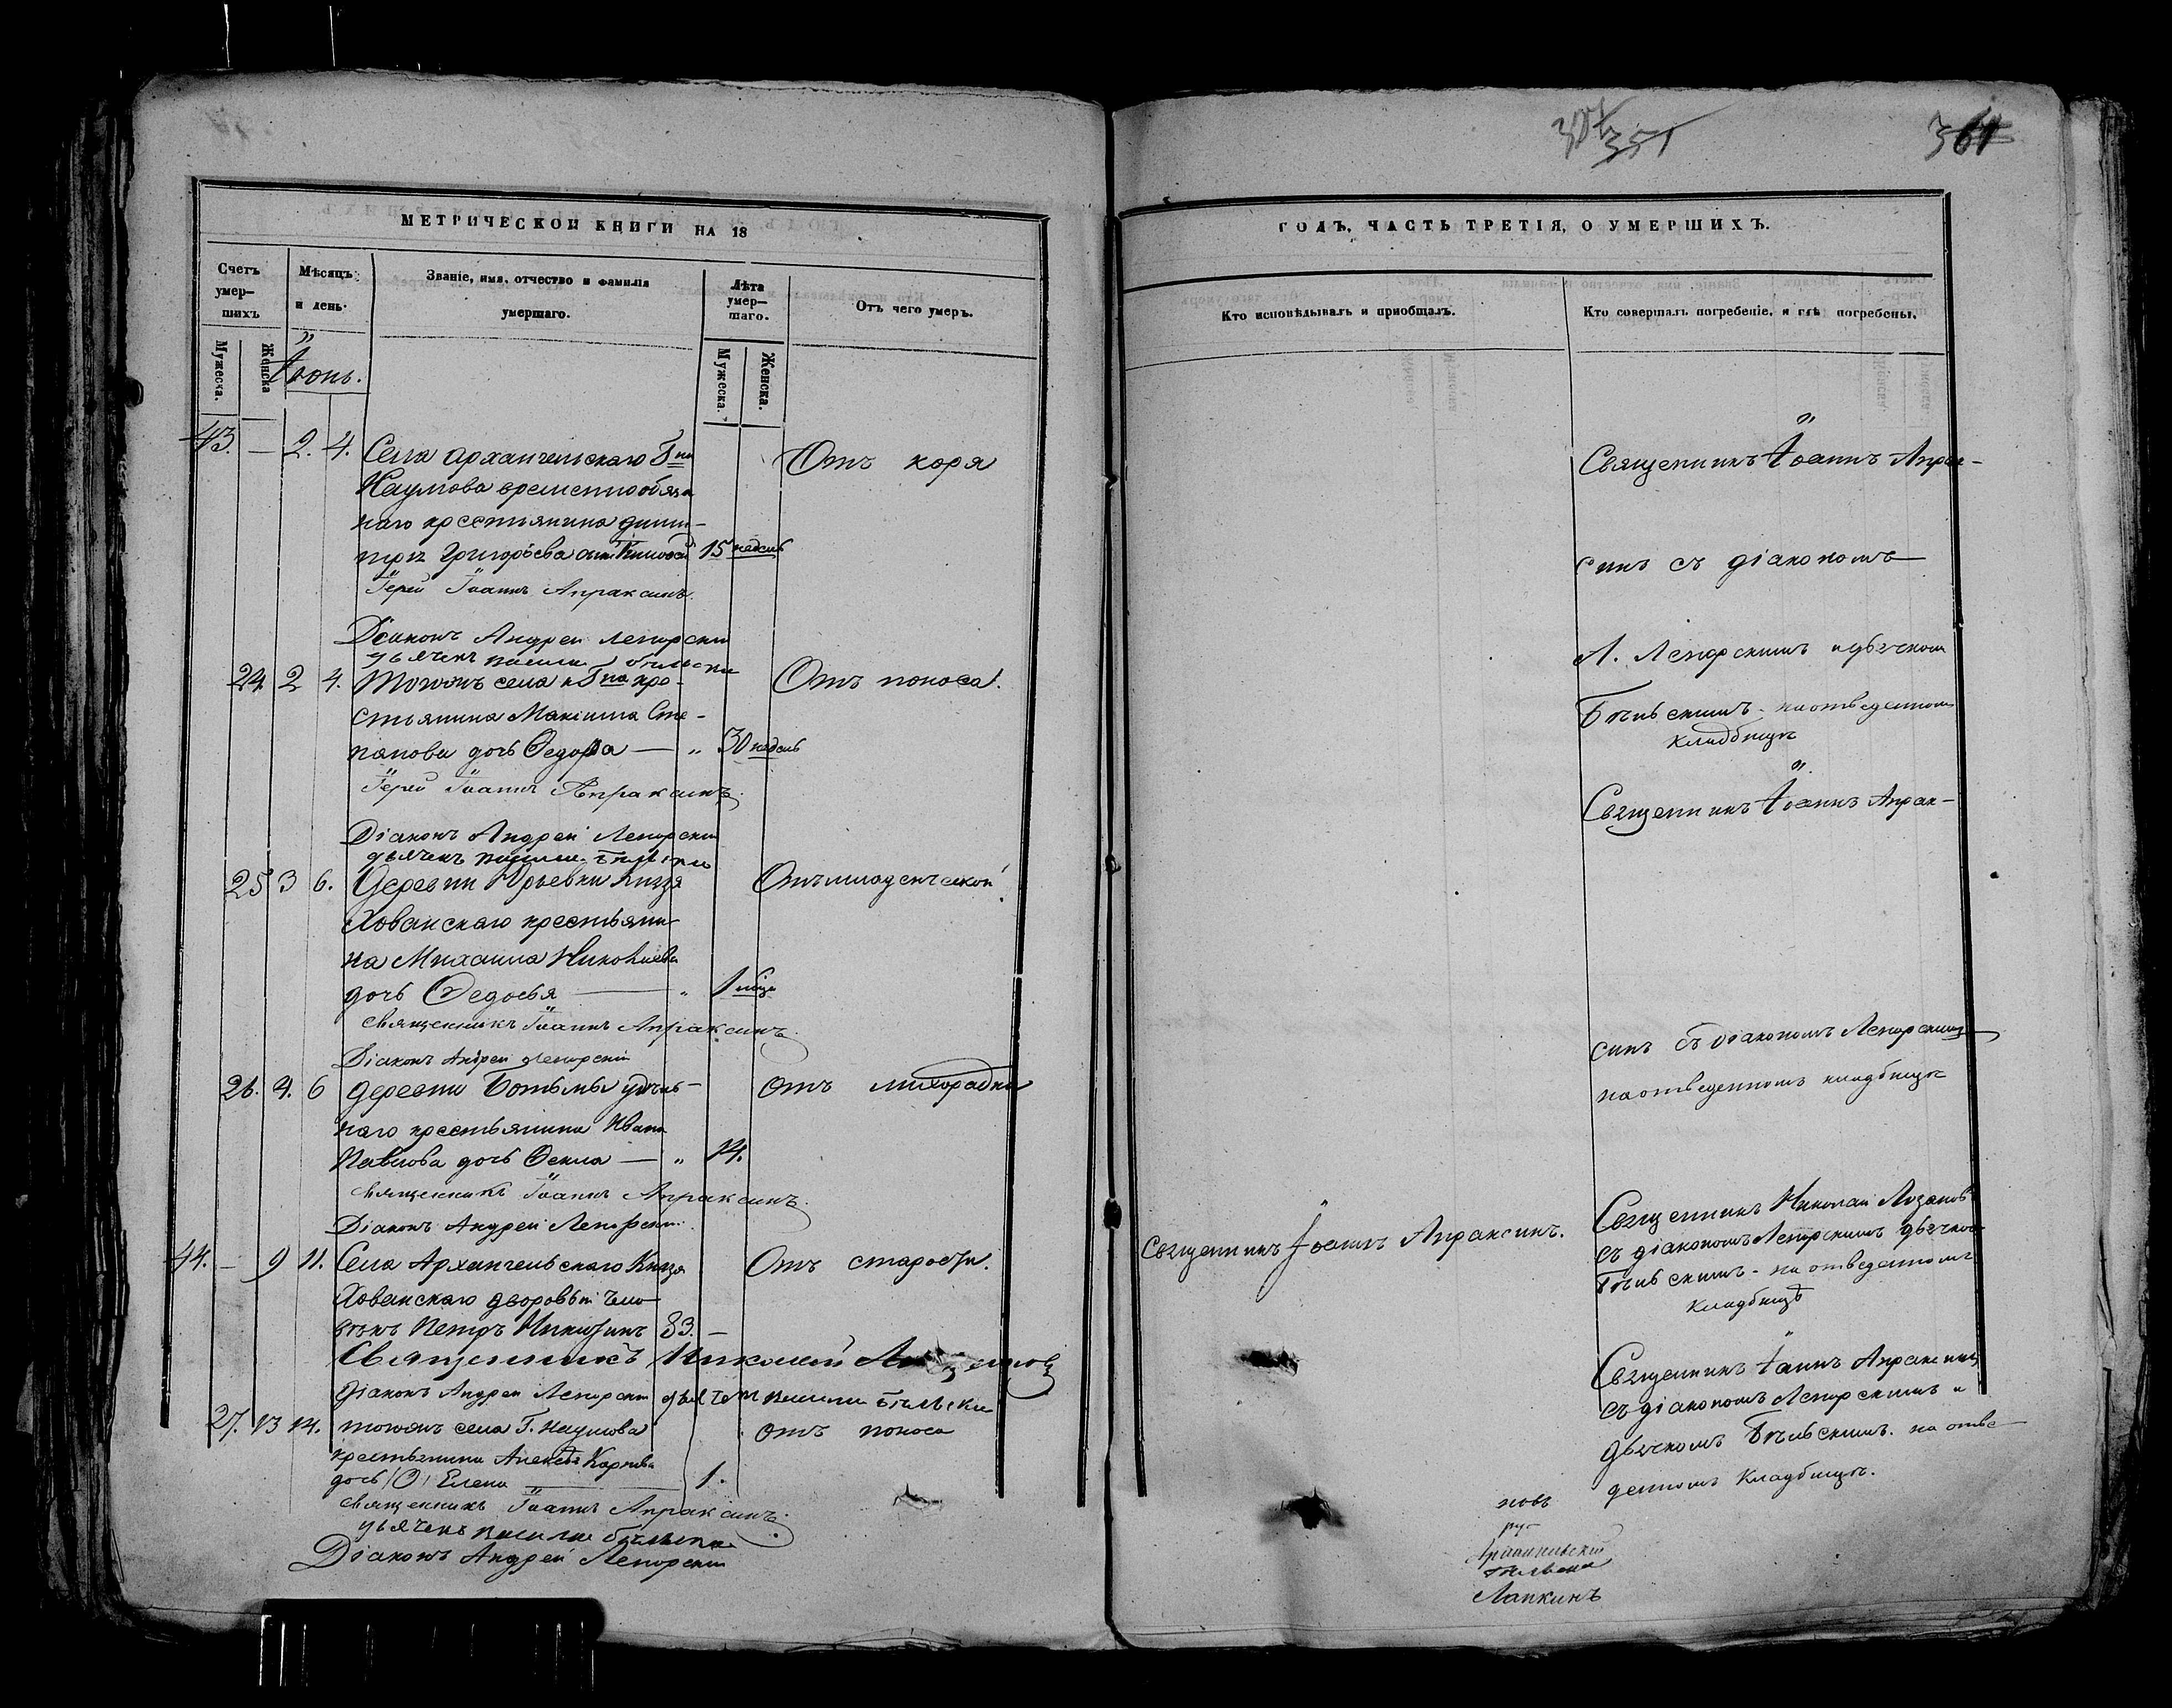 МЕТРИЧЕСКОЙ КНИГИ НА 18
Счетъ умер-шихъ
Мѣсяцъ и день.
Званіе, имя, отчество и фамилія умершаго.
Лѣта умер-шаго.
Отъ чего умеръ.
Мужеска.
Женска
Мужеска.
Женска.
Іюнь.
43. — 2. 4. Села Архангельскаго Гна
Отъ коря
Наумова временнообяза
наго крестьянина Дими-
трія Григорьева сынъ 15 недель
Іерей Іоаннъ Апраксинъ.
Діаконъ Андрей Лепорскій
дьячекъ
24. 2 4. Тогожъ села Гна кре-
Отъ поноса.
стьянина Максима Сте-
панова дочь Федора — „ 30 недель
Іерей Іоаннъ Апраксинъ.
Діаконъ Андрей Лепорскій
дьячекъ
25 3 6. Деревни Юрьевки Князя
Отъ младенческой.
Хованскаго крестьяни-
на Михаила Николаева
дочь Федосья — „ 1 мѣся
священникъ Іоаннъ Апраксинъ.
Діаконъ Андрей Лепорскій
26. 4. 6 деревни Ботьмы удѣль-
отъ лихорадки
наго крестьянина Ивана
Павлова дочь Фекла — „ 14.
священникъ Іоаннъ Апраксинъ.
Діаконъ Андрей Лепорскій.
44. — 9 11. Села Архангельскаго Князя
Отъ старости.
Хованскаго дворовый чело-
вѣкъ Петръ Никитинъ 83. —
Священникъ Николай
Діаконъ Андрей Лепорскій дьячекъ
27. 13 14. тогожъ села Г. Наумова
отъ поноса
крестьянина Алексѣя Карпова
дочь Елена 1.
священникъ Іоаннъ Апраксинъ.
дьячекъ
Діаконъ Андрей Лепорскій
361
351
ГОДЪ, ЧАСТЬ ТРЕТІЯ, О УМЕРШИХЪ.
Кто исповѣдывалъ и пріобщалъ.
Кто совершалъ погребеніе, и гдѣ погребены.
Священникъ Іоаннъ Апрак-
синъ съ діакономъ
А. Лепорскимъ и дьячкомъ
Бѣльскимъ на отведенномъ
кладбищѣ
Священникъ Іоаннъ Апрак-
синъ съ діакономъ Лепорскимъ
на отведенномъ кладбищѣ
Священникъ Іоаннъ Апраксинъ.
Священникъ Николай
съ діакономъ Лепорскимъ дьячкомъ
Бѣльскимъ - на отведенномъ
кладбищѣ
Священникъ Іоаннъ Апраксинъ
съ діакономъ Лепорскимъ и
дьячкомъ Бѣльскимъ. на отве-
денномъ кладбищѣ.
новъ
Лапкинъ